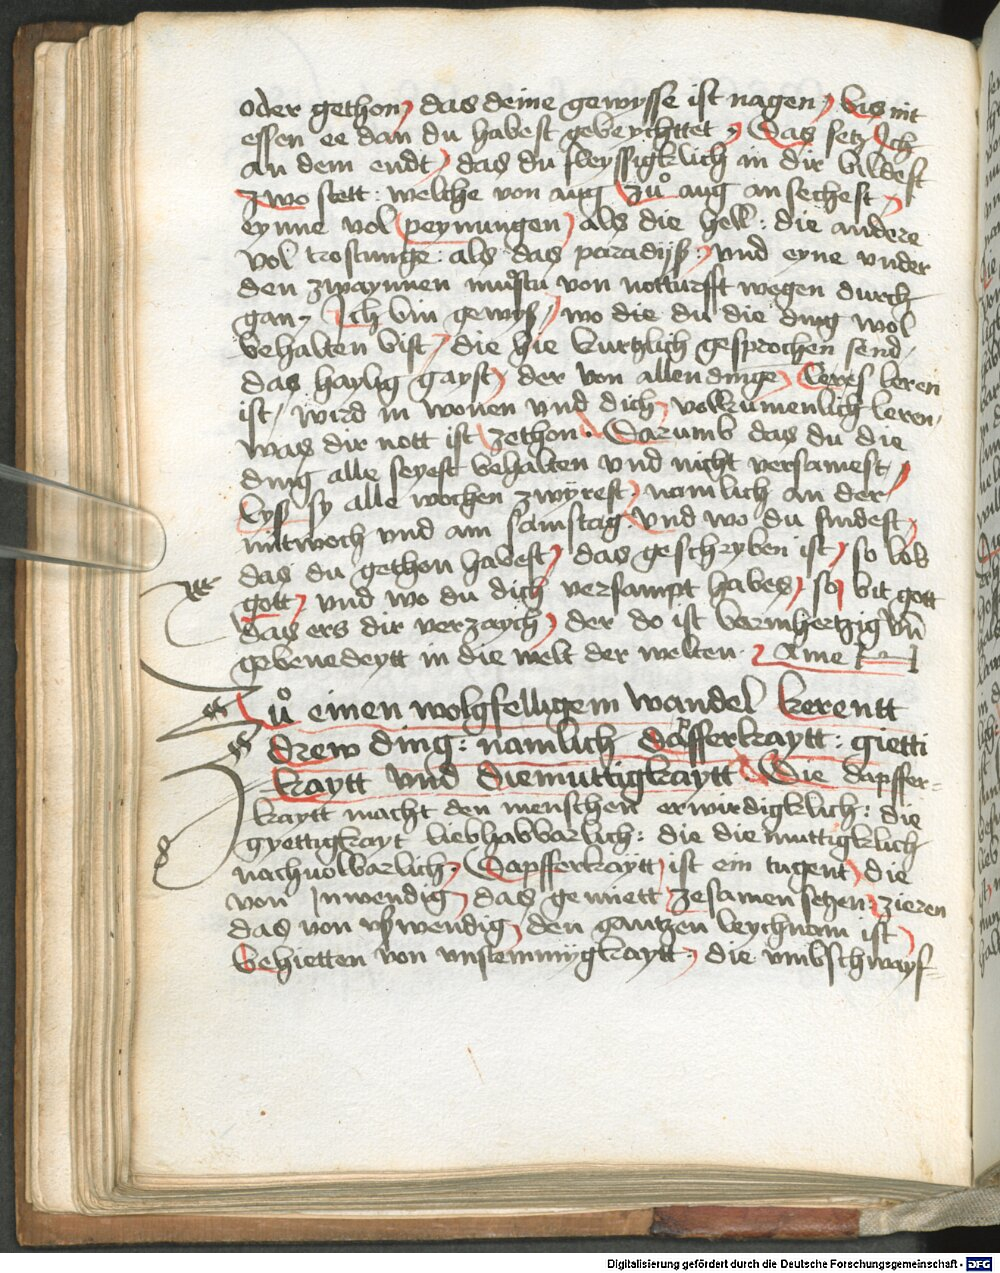 oder gethon / das deine gewysse ist nagen / bis nit
essen ee dan du habest gebeychttet / Das setz Ich
an dem endt / das du fleyssigklich in dir bildest
zwo stett : welche von aug zuͦ aug an sechest /
eynne vol peynungen / als die hell : die andere
vol trostunge : als das paradijß / und eyne under
den zwaynnen mustu von notturfft wegen durch
gan / Ich bin gewyß / wo die du die ding wol
behalten bist / die hie kurtzlich gesprochen send /
das haylig gayst / der von allen dinge / Leres leren
ist / wird in wonen vnd dich / volkumenlich leren /
was dir nott ist zethon . Darumb das du die
ding alle seyest behalten vnd nicht versamest /
lyß sy alle wochen zwyrest / namlich an der
mitwoch vnd am samstag . Vnd wo du findest /
das du gethon habest / das geschryben ist / so lob
gott / vnd wo du dich versampt habes / so bit gott
das ers dir verzaych / der do ist barmhertzig vn̄
gebenedeytt in die welt der welten . Ame
Zuͦ einen wolgfelligem wandel kerentt
drew ding : namlich dapfferkaytt : gietti
kaytt vnd diemuttigkaytt Die dapffer-
kaytt macht den menschen erwirdigklich : die
gyettigkayt liebhabbarlich : die die muttigklich
nachuolbarlich / Dapfferkaytt / ist ein tugent / die
von Inwendig / das gemiett zesamen setzen / zieren
das von vßwendig / den gantzen leychnam ist /
behietten von vnstemmygkaytt / die vmbschwayf-
Digitalisierung gefördert durch die Deutsche Forschungsgemeinschaft - DFG